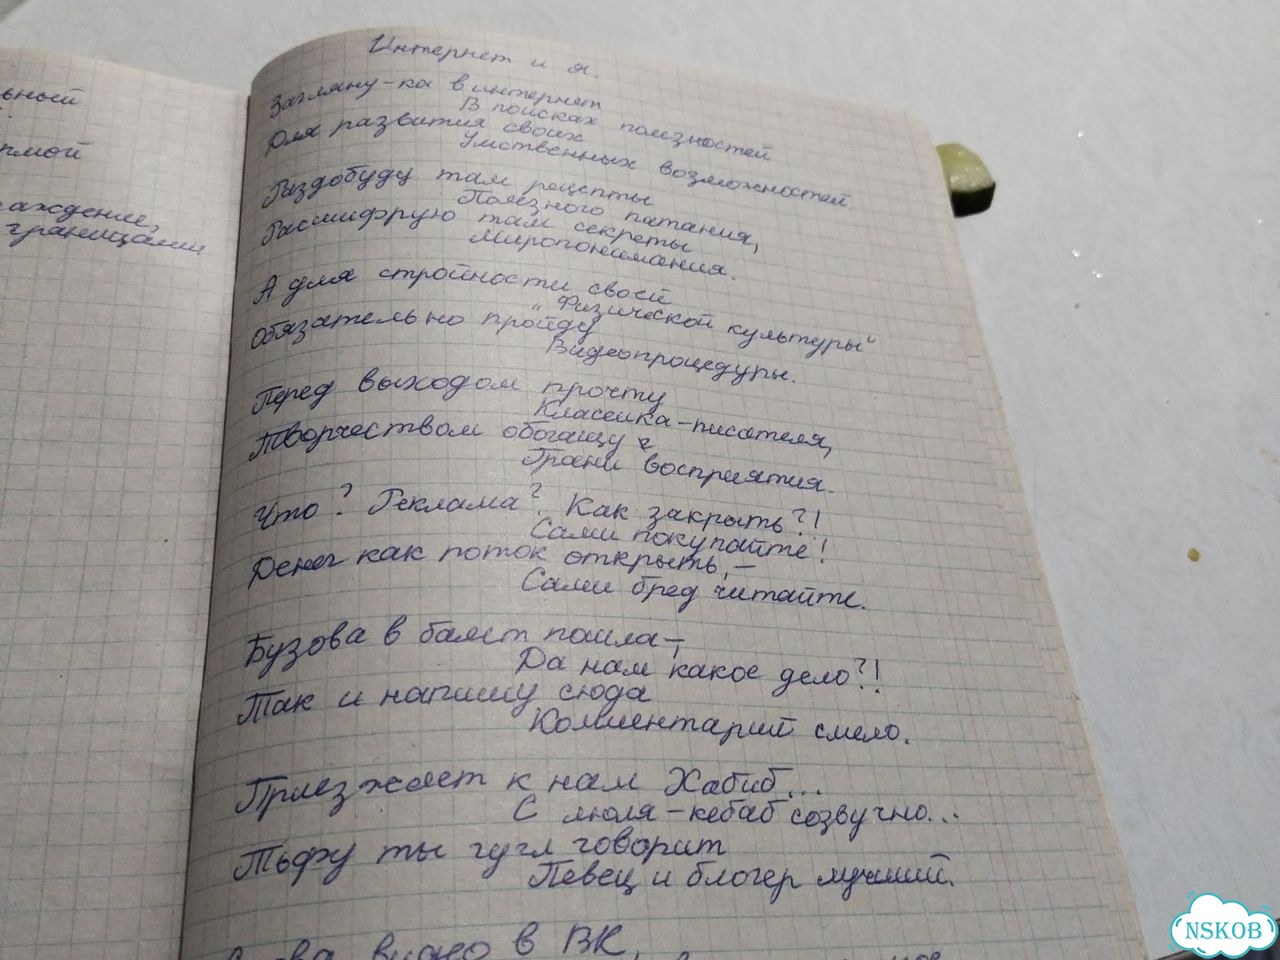 ьный
рмой
аждение,
границами
Интернет и я.
Загляну-ка в интернет
В поисках полезностей
Для развития своих
Умственных возможностей.
Раздобуду там рецепты
Полезного питания,
Расшифрую там секреты
Миропонимания.
А для стройности своей
"Физической культуры"
Обязательно пройду
Видеопроцедуры.
Перед выходом прочту
Классика-писателя,
Творчеством обогащу
Грани восприятия.
Что? Реклама? Как закрыть?!
Сами покупайте!
Денег как поток открыть, –
Сами бред читайте.
Бузова в балет пошла –,
Да нам какое дело?!
Так и напишу сюда
Комментарий смело.
Приезжает к нам Хабиб...
С люля-кебаб созвучно...
Тьфу ты гугл говорит
Певец и блогер лучший.
видно в ВК,
NSKOB